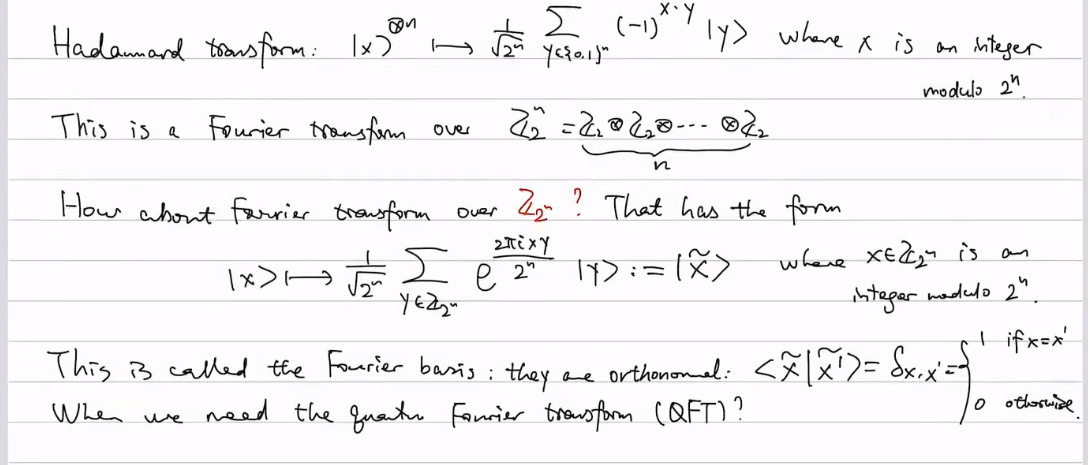 Hadamard transform: |x⟩^{⊗n} ↦ 1/√2^n ∑_{y∈{0,1}^n} (-1)^{x·y} |y⟩ where x is an integer
modulo 2^n.
This is a Fourier transform over ℤ_2^n = ℤ_2⊗ℤ_2⊗---⊗ℤ_2
n
How about Fourier transform over ℤ_{2^n}? That has the form
|x⟩ ↦ 1/√2^n ∑_{y∈ℤ_{2^n}} e^{2πixy/2^n} |y⟩ := |x̃⟩ where x∈ℤ_{2^n} is an
integer modulo 2^n.
This is called the Fourier basis; they are orthonormal: <x̃|x̃'⟩ = δ_{x,x'} = { 1 if x=x'
When we need the quantu Fourier transform (QFT)? 0 otherwise.